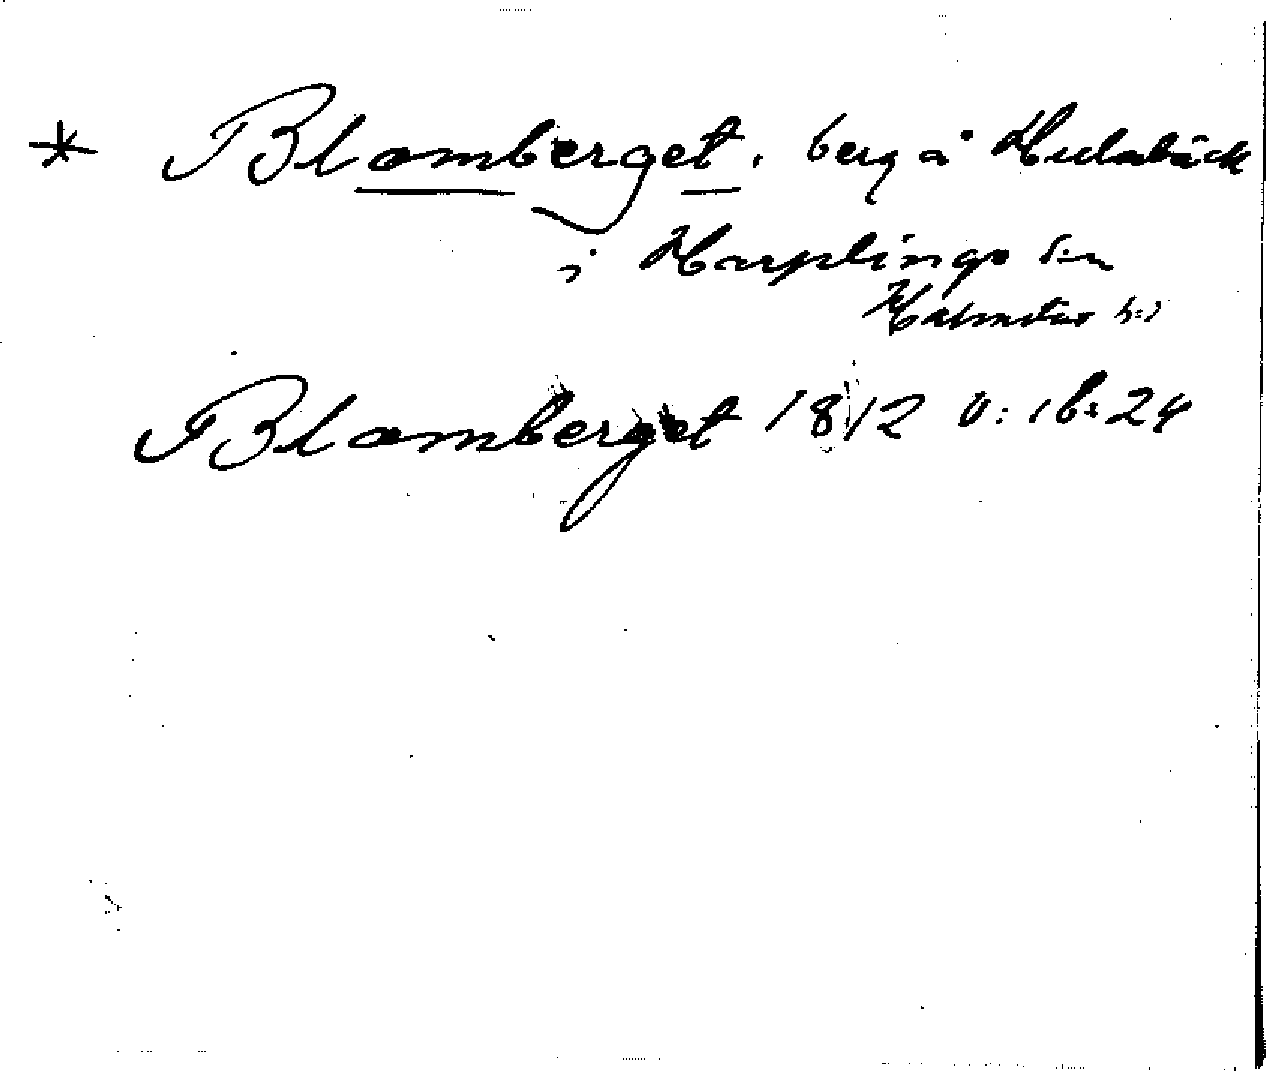 * Blomberget, berg å Hulabäck
i Harplinge sn
Halmstads hd
Blomberget 1812 v: 16: 24